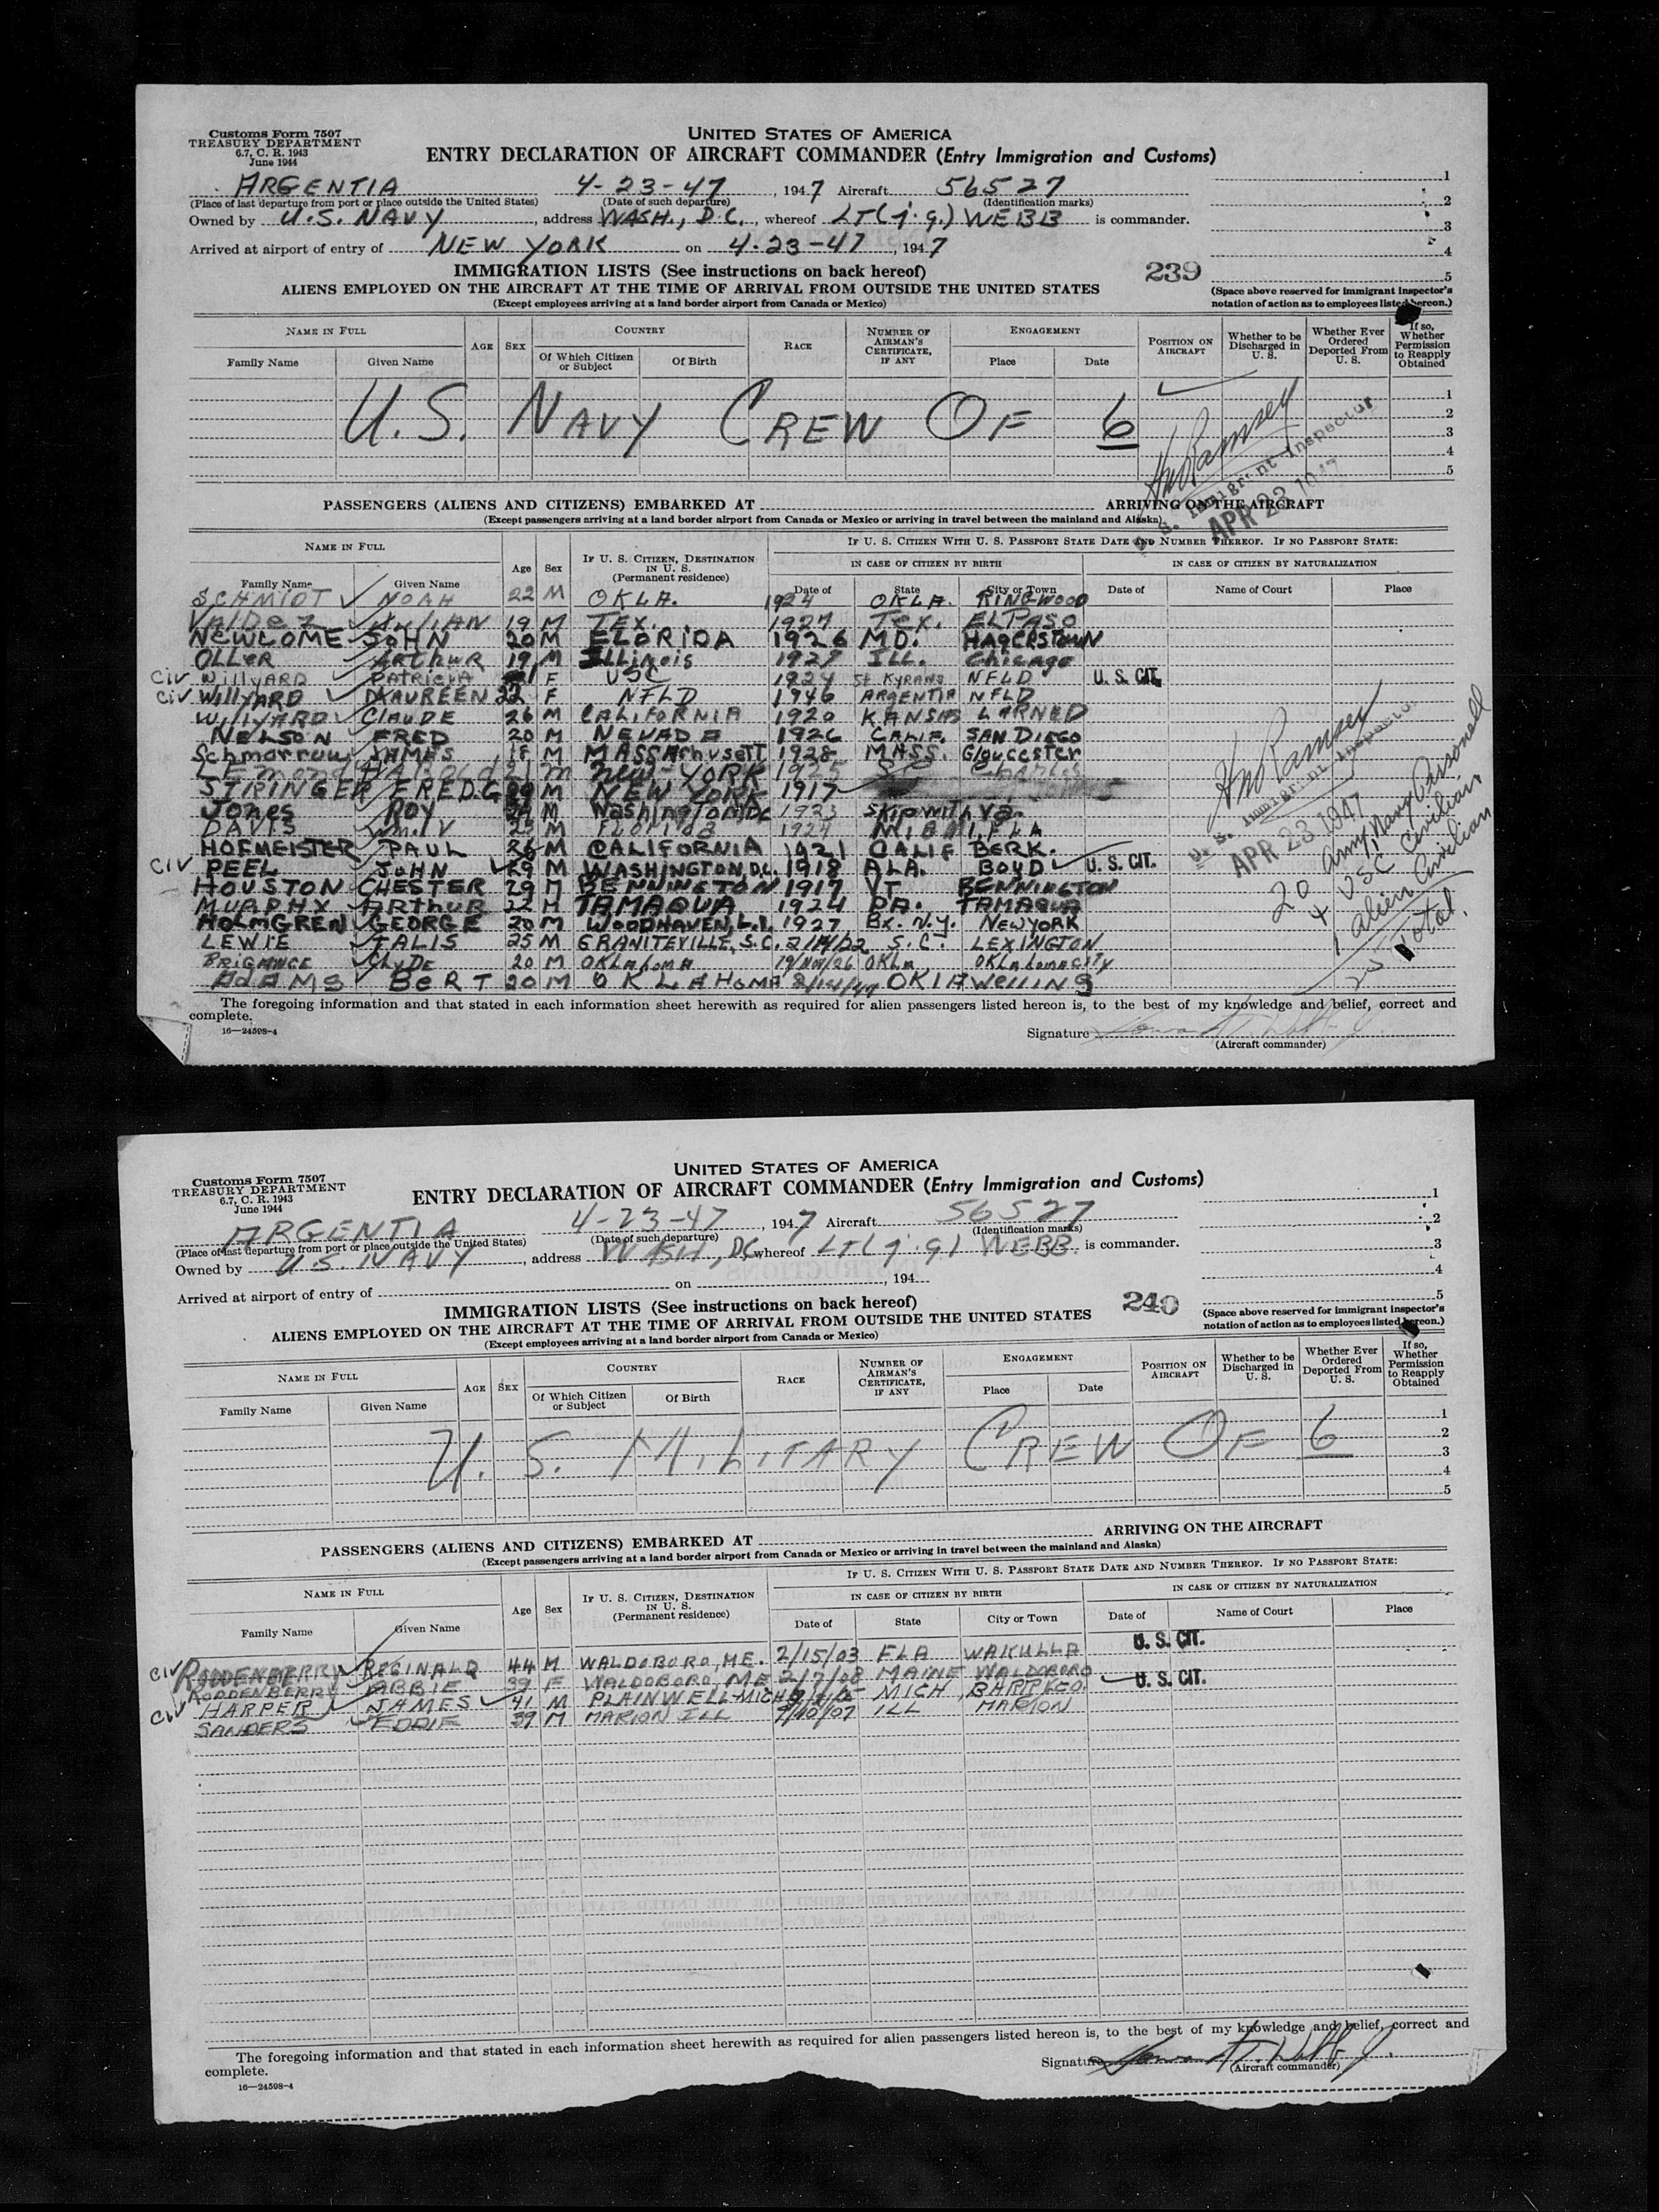 Customs Form 7507
TREASURY DEPARTMENT
6.7, C. R. 1943
June 1944
UNITED STATES OF AMERICA
ENTRY DECLARATION OF AIRCRAFT COMMANDER (Entry Immigration and Customs)
ARGENTIA 4-23-47, 1947 Aircraft 56527
(Place of last departure from port or place outside the United States) (Date of such departure) (Identification marks)
Owned by U.S. NAVY, address WASH., D.C., whereof LT(j.g.) WEBB is commander.
Arrived at airport of entry of NEW YORK on 4-23-47, 1947
1
2
3
4
5
IMMIGRATION LISTS (See instructions on back hereof)
239
ALIENS EMPLOYED ON THE AIRCRAFT AT THE TIME OF ARRIVAL FROM OUTSIDE THE UNITED STATES
(Except employees arriving at a land border airport from Canada or Mexico)
(Space above reserved for immigrant inspector's notation of action as to employees listed hereon.)
NAME IN FULL
Family Name Given Name
AGE SEX
COUNTRY
Of Which Citizen or Subject Of Birth
RACE
NUMBER OF AIRMAN'S CERTIFICATE, IF ANY
ENGAGEMENT
Place Date
POSITION ON AIRCRAFT
Whether to be Discharged in U. S.
Whether Ever Ordered Deported From U. S.
If so, Whether Permission to Reapply Obtained
U.S. NAVY CREW OF 6
1
2
3
4
5
U. S. Immigrant Inspector
APR 23 1947
PASSENGERS (ALIENS AND CITIZENS) EMBARKED AT ARRIVING ON THE AIRCRAFT
(Except passengers arriving at a land border airport from Canada or Mexico or arriving in travel between the mainland and Alaska)
NAME IN FULL
Family Name Given Name
Age Sex
IF U. S. CITIZEN, DESTINATION IN U. S.
(Permanent residence)
IF U. S. CITIZEN WITH U. S. PASSPORT STATE DATE AND NUMBER THEREOF. IF NO PASSPORT STATE:
IN CASE OF CITIZEN BY BIRTH IN CASE OF CITIZEN BY NATURALIZATION
Date of State City or Town Date of Name of Court Place
SCHMIDT NOAH 22 M OKLA. 1924 OKLA. RINGWOOD
Valdez Julian 19 M TEX. 1927 Tex. ELPASO
NEWCOME JOHN 20 M FLORIDA 1926 MD. HAGERSTOWN
OLLer Arthur 19 M Illinois 1927 ILL. Chicago
Civ Willyard PATRICIA F USC 1924 St KYRANS NFLD U. S. CIT.
Civ WillYARD MAUREEN 22 F NFLD 1946 ARGENTIA NFLD
WillyARD ClauDE 26 M CALIFORNIA 1920 KANSAS LARNED
NELSON FRED 20 M NEVADA 1926 CALIF. SAN DIEGO
Schmorrow JAMES 18 M MASSAchusett 1928 MASS. Gloucester
21 m New-York 1925
STRINGER FRED G M NEW YORK 1917
Jones Roy M Washington, DC 1923 Skipwith Va.
DAVIS Wm. V 23 M Florida 1924 MIAMI, FLA
HOFMEISTER PAUL 26 M CALIFORNIA 1921 CALIF BERK.
Civ PEEL JOHN 29 M WASHINGTON, D.C. 1918 ALA. BOYD U. S. CIT.
HOUSTON CHESTER 29 M BENNINGTON 1917 VT BENNINGTON
MURPHY Arthur 22 M TAMAQUA 1924 PA. TAMAQUA
HOLMGREN GEORGE 20 M WOODHAVEN, L.I. 1927 BX. N.Y. NEW YORK
LEWIE TALIS 25 M GRANITEVILLE, S.C. 2/14/22 S.C. LEXINGTON
BRIGANCE ClyDE 20 M OKlahoma 19/Nov/26 OKla OKlahoma city
AdAMS BeRT 20 M OKLAHOMA OKIA Welling
U. S. Immigrant Inspector
APR 23 1947
20 Army, Navy Personell
4 USC Civilian
1 alien Civilian
25 Total.
The foregoing information and that stated in each information sheet herewith as required for alien passengers listed hereon is, to the best of my knowledge and belief, correct and complete.
16—24598-4
Signature
(Aircraft commander)
Customs Form 7507
TREASURY DEPARTMENT
6.7, C. R. 1943
June 1944
UNITED STATES OF AMERICA
ENTRY DECLARATION OF AIRCRAFT COMMANDER (Entry Immigration and Customs)
ARGENTIA 4-23-47, 1947 Aircraft 56527
(Place of last departure from port or place outside the United States) (Date of such departure) (Identification marks)
Owned by U.S. NAVY, address WASH, DC whereof LT(j.g) WEBB is commander.
Arrived at airport of entry of on , 194
1
2
3
4
5
IMMIGRATION LISTS (See instructions on back hereof)
240
ALIENS EMPLOYED ON THE AIRCRAFT AT THE TIME OF ARRIVAL FROM OUTSIDE THE UNITED STATES
(Except employees arriving at a land border airport from Canada or Mexico)
(Space above reserved for immigrant inspector's notation of action as to employees listed hereon.)
NAME IN FULL
Family Name Given Name
AGE SEX
COUNTRY
Of Which Citizen or Subject Of Birth
RACE
NUMBER OF AIRMAN'S CERTIFICATE, IF ANY
ENGAGEMENT
Place Date
POSITION ON AIRCRAFT
Whether to be Discharged in U. S.
Whether Ever Ordered Deported From U. S.
If so, Whether Permission to Reapply Obtained
U. S. MILITARY CREW OF 6
1
2
3
4
5
PASSENGERS (ALIENS AND CITIZENS) EMBARKED AT ARRIVING ON THE AIRCRAFT
(Except passengers arriving at a land border airport from Canada or Mexico or arriving in travel between the mainland and Alaska)
NAME IN FULL
Family Name Given Name
Age Sex
IF U. S. CITIZEN, DESTINATION IN U. S.
(Permanent residence)
IF U. S. CITIZEN WITH U. S. PASSPORT STATE DATE AND NUMBER THEREOF. IF NO PASSPORT STATE:
IN CASE OF CITIZEN BY BIRTH IN CASE OF CITIZEN BY NATURALIZATION
Date of State City or Town Date of Name of Court Place
Civ RODDENBERRY REGINALD 44 M WALDOBORO, ME. 2/15/03 FLA WAKULLA U. S. CIT.
Civ RODDENBERRY ABBIE 39 F WALDOBORO, ME 2/7/08 MAINE WALDOBORO U. S. CIT.
Civ HARPER JAMES 41 M PLAINWELL-MICH MICH
SANDERS EDDIE 39 M MARION ILL 9/10/07 ILL MARION
The foregoing information and that stated in each information sheet herewith as required for alien passengers listed hereon is, to the best of my knowledge and belief, correct and complete.
16—24598-4
Signature
(Aircraft commander)